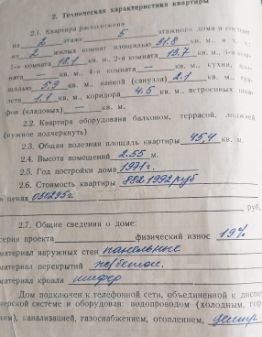 2. Техническая характеристика квартиры
2.1. Квартира расположена
на 2 этаже 5 этажного дома и состоит
из 2 жилых комнат площадью 31.8 кв. м., в т. ч.
1-я комната 18.1 кв. м, 2-я комната 13.7 кв. м, 3-я ком-
ната — кв. м., 4-я комната — кв. м., кухни, площадью 5.9 кв. м., ванной (санузла) 2.1 кв. м., туа-
лета 1.1 кв. м., коридора 4.5 кв. м., встроенных шка-
фов (кладовых) — кв. м.
2.2. Квартира оборудована балконом, террасой, лоджией
(нужное подчеркнуть)
2.3. Общая полезная площадь квартиры 45,4 кв. м.
2.4. Высота помещений 2.55 м.
2.5. Год постройки дома 1971г.
2.6. Стоимость квартиры 882 1992 руб
в ценах
руб.
2.7. Общие сведения о доме:
серия проекта физический износ 19%
материал наружных стен панельные
материал перекрытий ж/бетон.
материал кровли шифер
Дом подключен к телефонной сети, объединенной к диспет-
черской системе и оборудован: водопроводом (холодным, гор
канализацией, газоснабжением, отоплением, центр